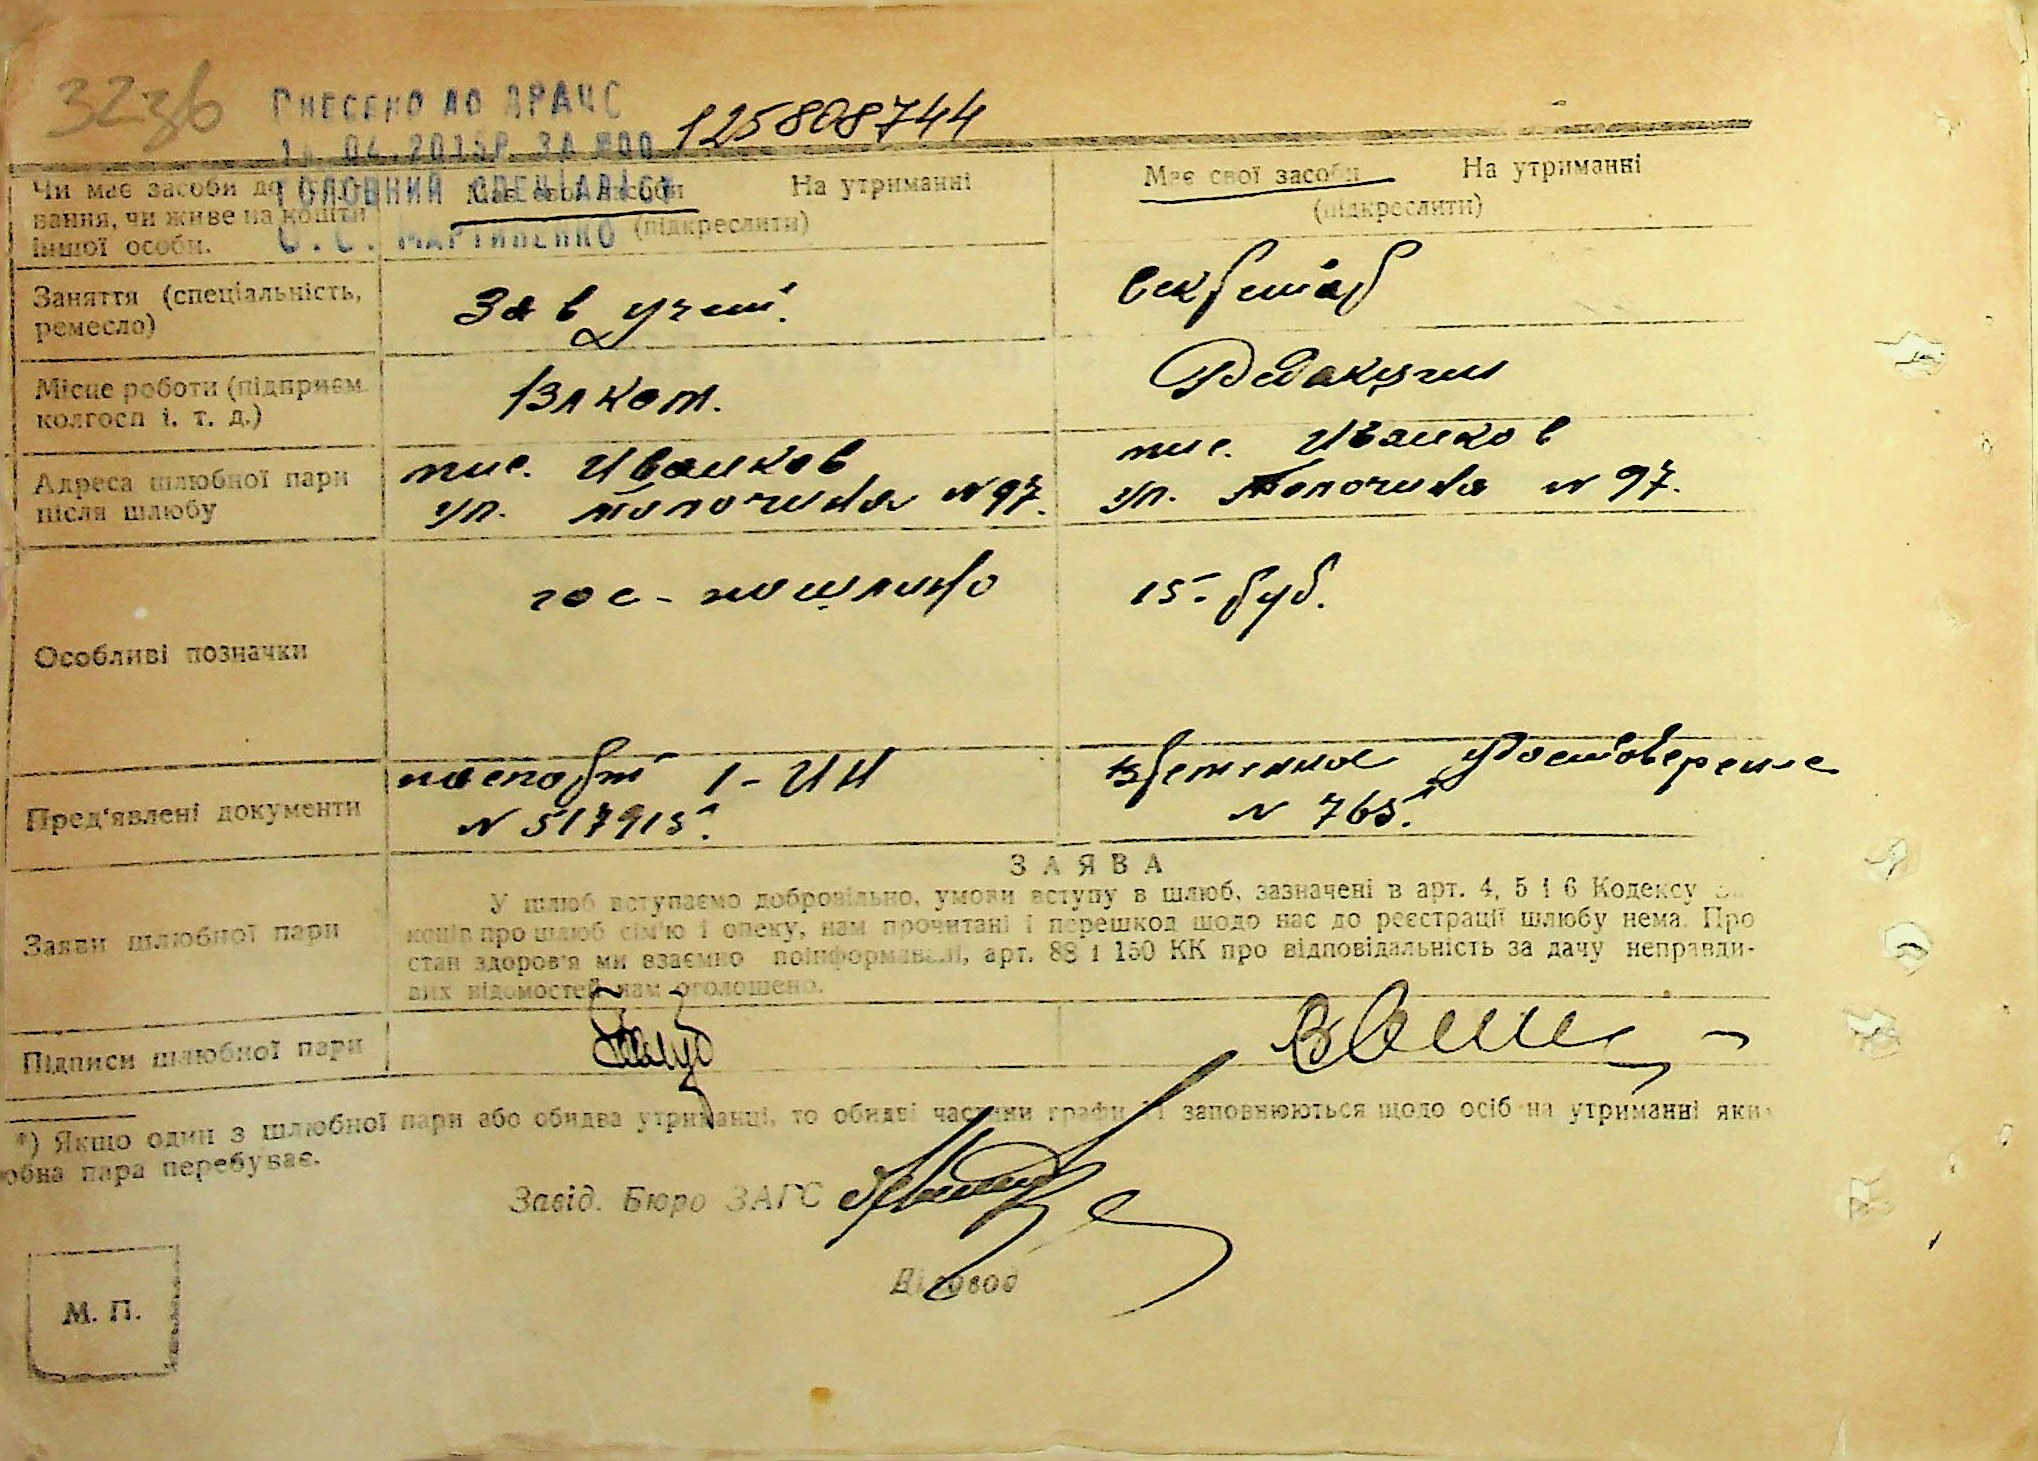 32зв
ВНЕСЕНО ДО ДРАЧС
04.2015Р. ЗА №00 125808744
ГОЛОВНИЙ СПЕЦІАЛІСТ
О. С. МАРТИНЕНКО
Чи має засоби до
вання, чи живе на кошти
іншої особи.
Має свої засоби На утриманні
(підкреслити)
Має свої засоби На утриманні
(підкреслити)
Заняття (спеціальність,
ремесло)
Зав учет.
секретар
Місце роботи (підприєм.
колгосп і. т. д.)
Редакции
Адреса шлюбної пари
після шлюбу
пос. Иванков
ул. Толочина № 97.
пос. Иванков
ул. Толочина № 97.
Особливі позначки
гос-пошлино 15- руб.
Пред'явлені документи
паспорт 1-ИИ
№ 517915.
временное удостоверение
№ 765.
Заяви шлюбної пари
ЗАЯВА
У шлюб вступаємо добровільно, умови вступу в шлюб, зазначені в арт. 4, 5 і 6 Кодексу за-
конів про шлюб сім'ю і опеку, нам прочитані і перешкод щодо нас до реєстрації шлюбу нема. Про
стан здоров'я ми взаємно поінформовані, арт. 88 і 150 КК про відповідальність за дачу неправди-
вих відомостей нам оголошено.
Підписи шлюбної пари
*) Якщо один з шлюбної пари або обидва утриманці, то обидві частини графи 11 заповнюються щодо осіб на утриманні яки
юбна пара перебуває.
Завід. Бюро ЗАГС
Діловод
М. П.